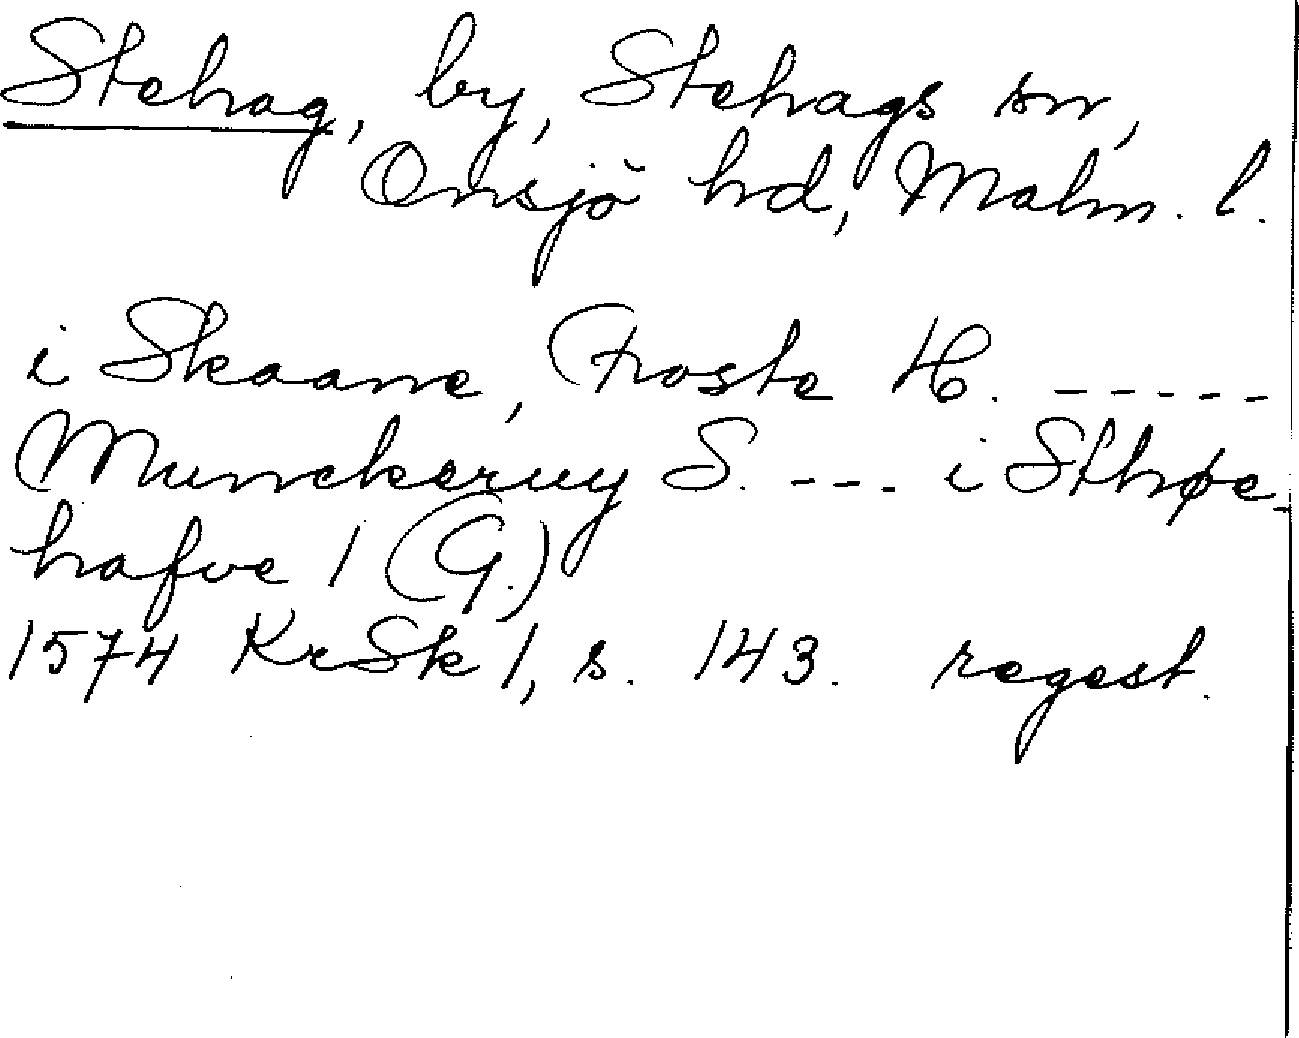 Stehag, by, Stehags sn,
Onsjö hd, Malm. l.
i Skaane, Froste H. -----
Munckeruy S. --- i Sthøe-
hafve 1 (G.)
1574 KrSk 1, s. 143. regest.